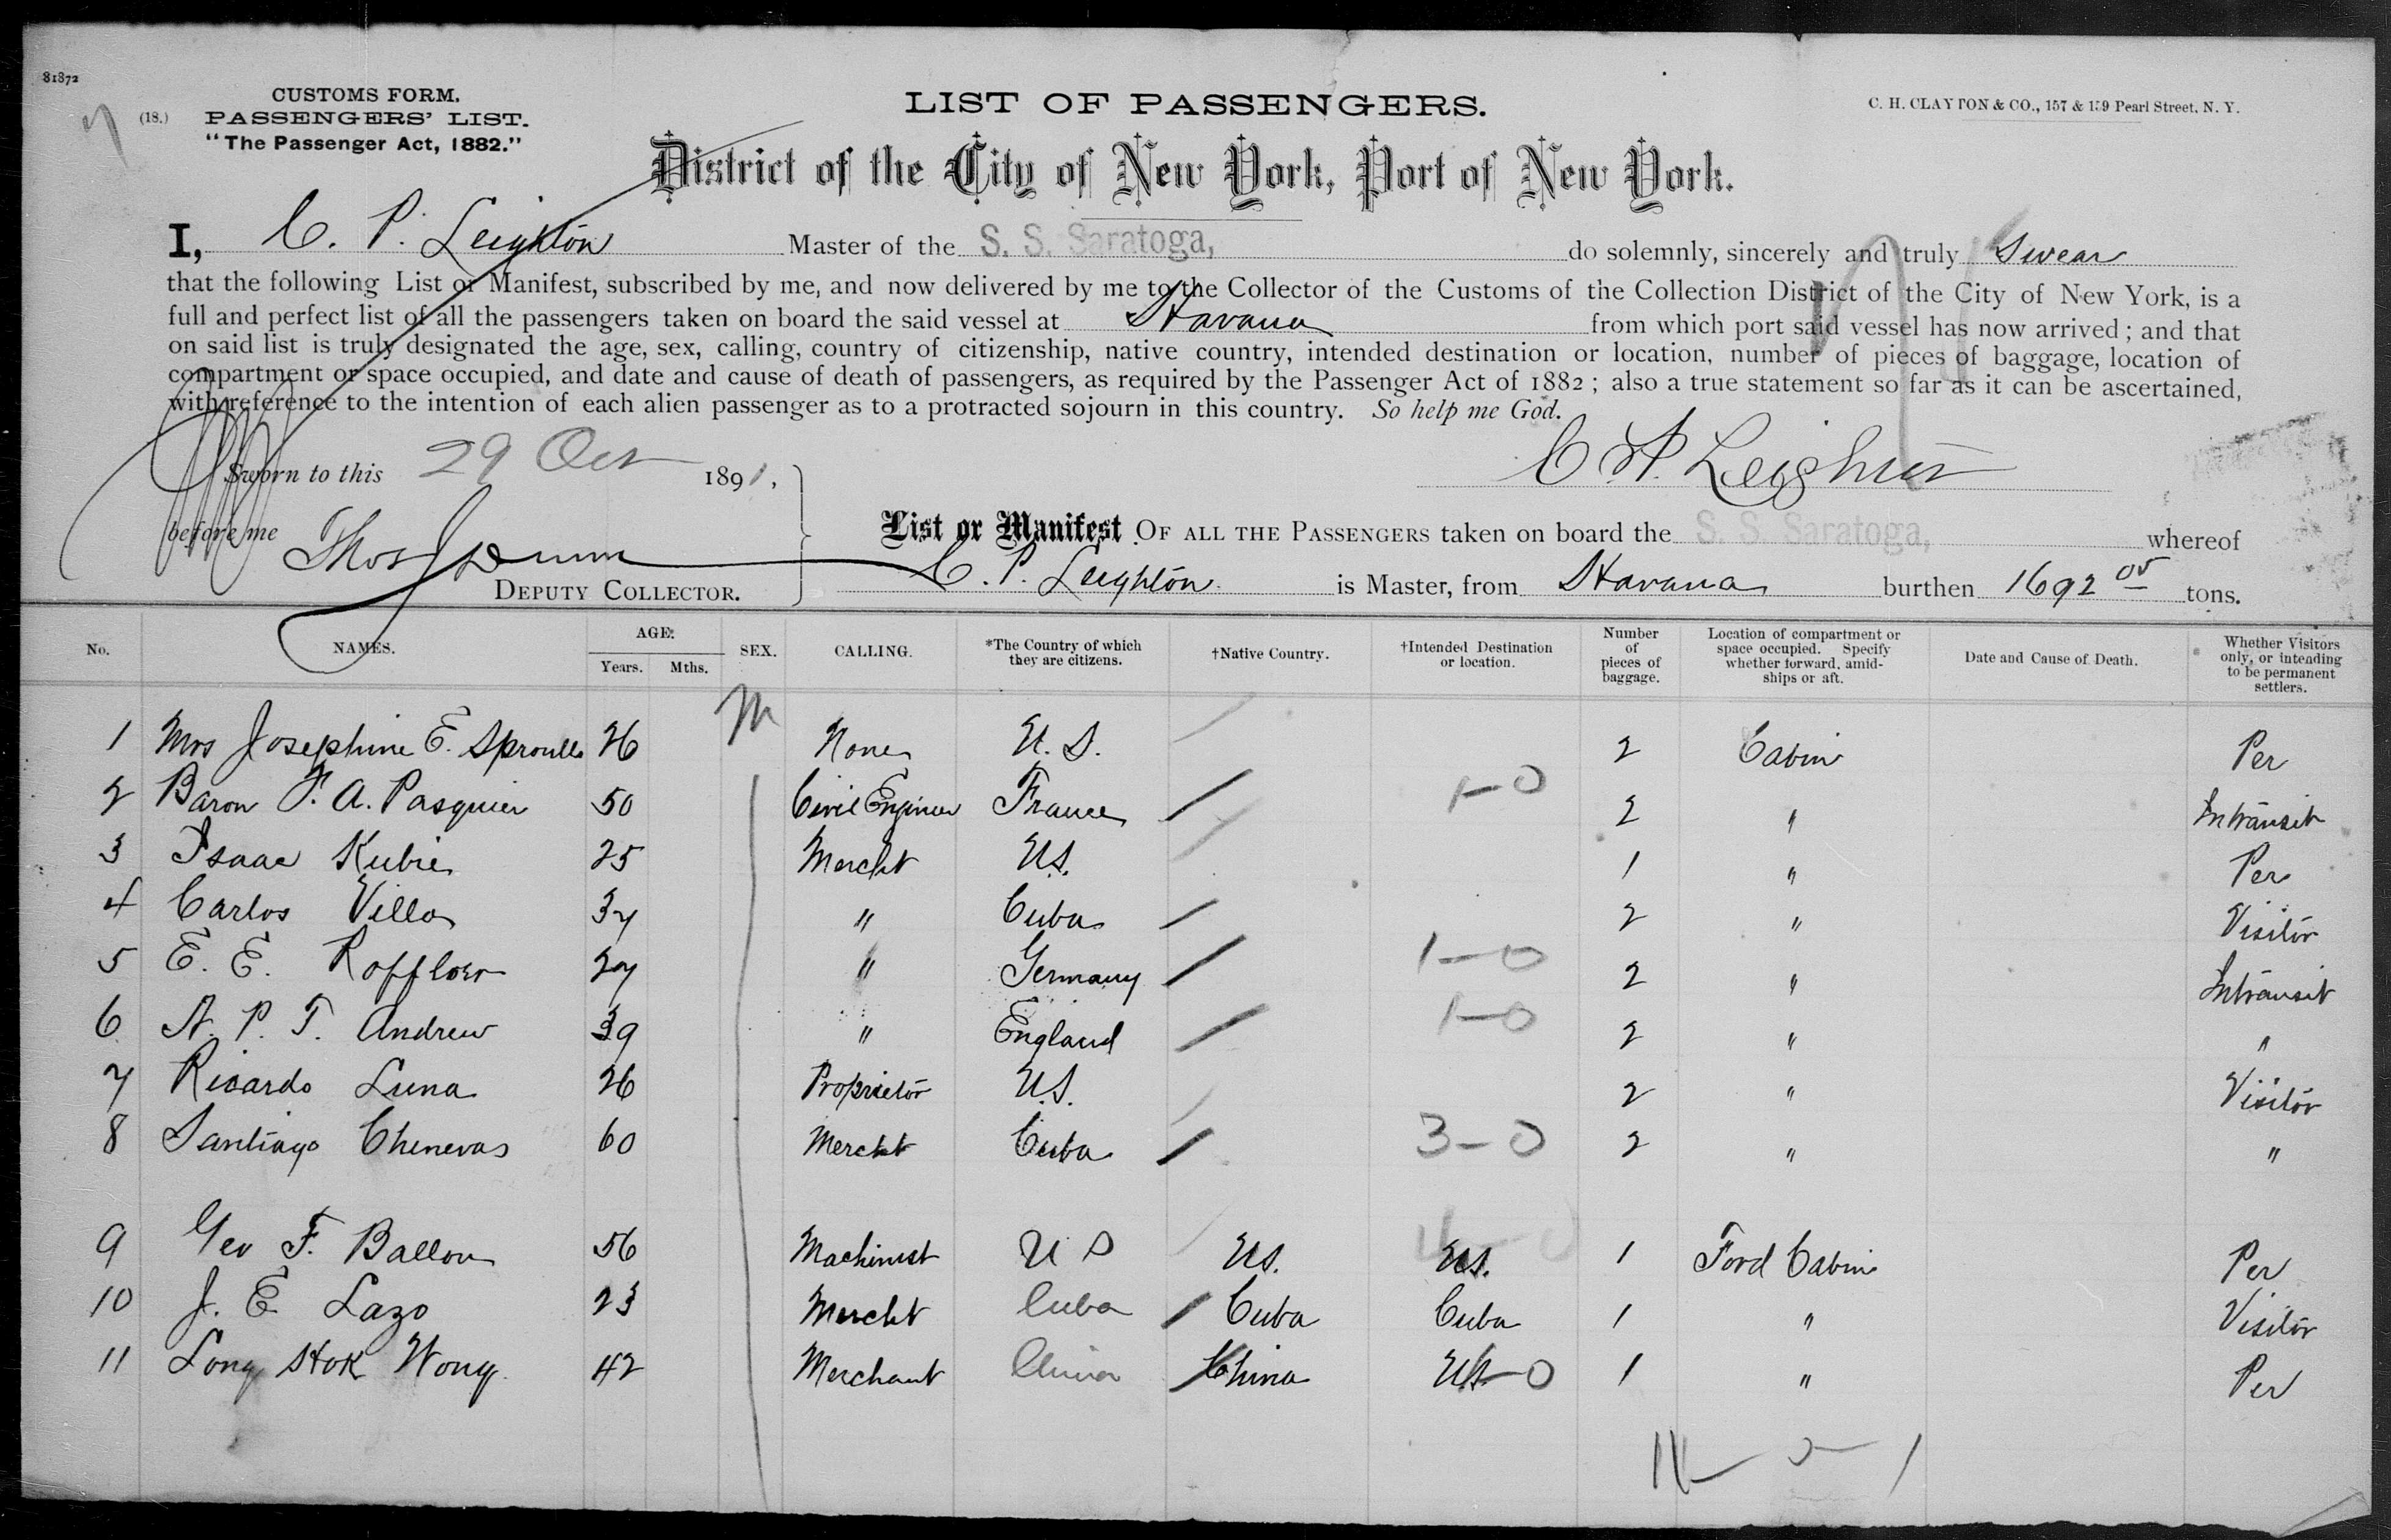 81872
(18.)
CUSTOMS FORM.
PASSENGERS' LIST.
"The Passenger Act, 1882."
LIST OF PASSENGERS.
C. H. CLAYTON & CO., 157 & 159 Pearl Street, N. Y.
District of the City of New York, Port of New York.
I, C. P. Leighton Master of the S. S. Saratoga, do solemnly, sincerely and truly Swear
that the following List or Manifest, subscribed by me, and now delivered by me to the Collector of the Customs of the Collection District of the City of New York, is a
full and perfect list of all the passengers taken on board the said vessel at Havana from which port said vessel has now arrived; and that
on said list is truly designated the age, sex, calling, country of citizenship, native country, intended destination or location, number of pieces of baggage, location of
compartment or space occupied, and date and cause of death of passengers, as required by the Passenger Act of 1882; also a true statement so far as it can be ascertained,
with reference to the intention of each alien passenger as to a protracted sojourn in this country. So help me God.
Sworn to this 29 Oct 1891,
C P. Leighton
before me Thos J Dunn
DEPUTY COLLECTOR.
List or Manifest OF ALL THE PASSENGERS taken on board the S. S. Saratoga, whereof
C. P. Leighton is Master, from Havana burthen 1692 05 tons.
No. NAMES. AGE. Years. Mths. SEX. CALLING. *The Country of which they are citizens. †Native Country. †Intended Destination or location. Number of pieces of baggage. Location of compartment or space occupied. Specify whether forward, amidships or aft. Date and Cause of Death. Whether Visitors only, or intending to be permanent settlers.
M
1 Mrs Josephine E. Sproulls 26 None U. S. 2 Cabin Per
2 Baron F. A. Pasquier 50 Civil Engineer France 1-0 2 " Intransit
3 Isaac Kubie 25 Mercht U.S. 1 " Per
4 Carlos Villa 37 " Cuba 2 " Visitor
5 E. E. Roffloer 27 " Germany 1-0 2 " Intransit
6 A. P. T. Andrew 39 " England 1-0 2 " "
7 Ricardo Luna 26 Proprietor U.S. 2 " Visitor
8 Santiago Chenevas 60 Mercht Cuba 3-0 2 " "
9 Geo F. Ballou 56 Machinist U S U.S. U.S. 1 Ford Cabin Per
10 J. E. Lazo 23 Mercht Cuba Cuba Cuba 1 " Visitor
11 Long Hok Wong 42 Merchant China China U.S. 1 " Per